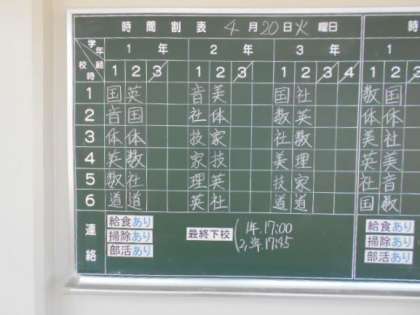 時間割表 4月20日火曜日 時
学年 1年 2年 3年 1
校時 組 1 2 3 1 2 3 1 2 3 4 1 2
1 国 英 音 美 国 社 数 国
2 音 国 社 体 数 英 体 体
3 体 体 技 家 社 数 美 社
4 英 数 家 技 美 理 英 美
5 数 社 理 英 技 家 社 音
6 道 道 英 社 道 道 国 数
連絡
給食あり
掃除あり
部活あり
最終下校
1年 17:00
2,3年 17:45
給食あり
掃除あり
部活あり